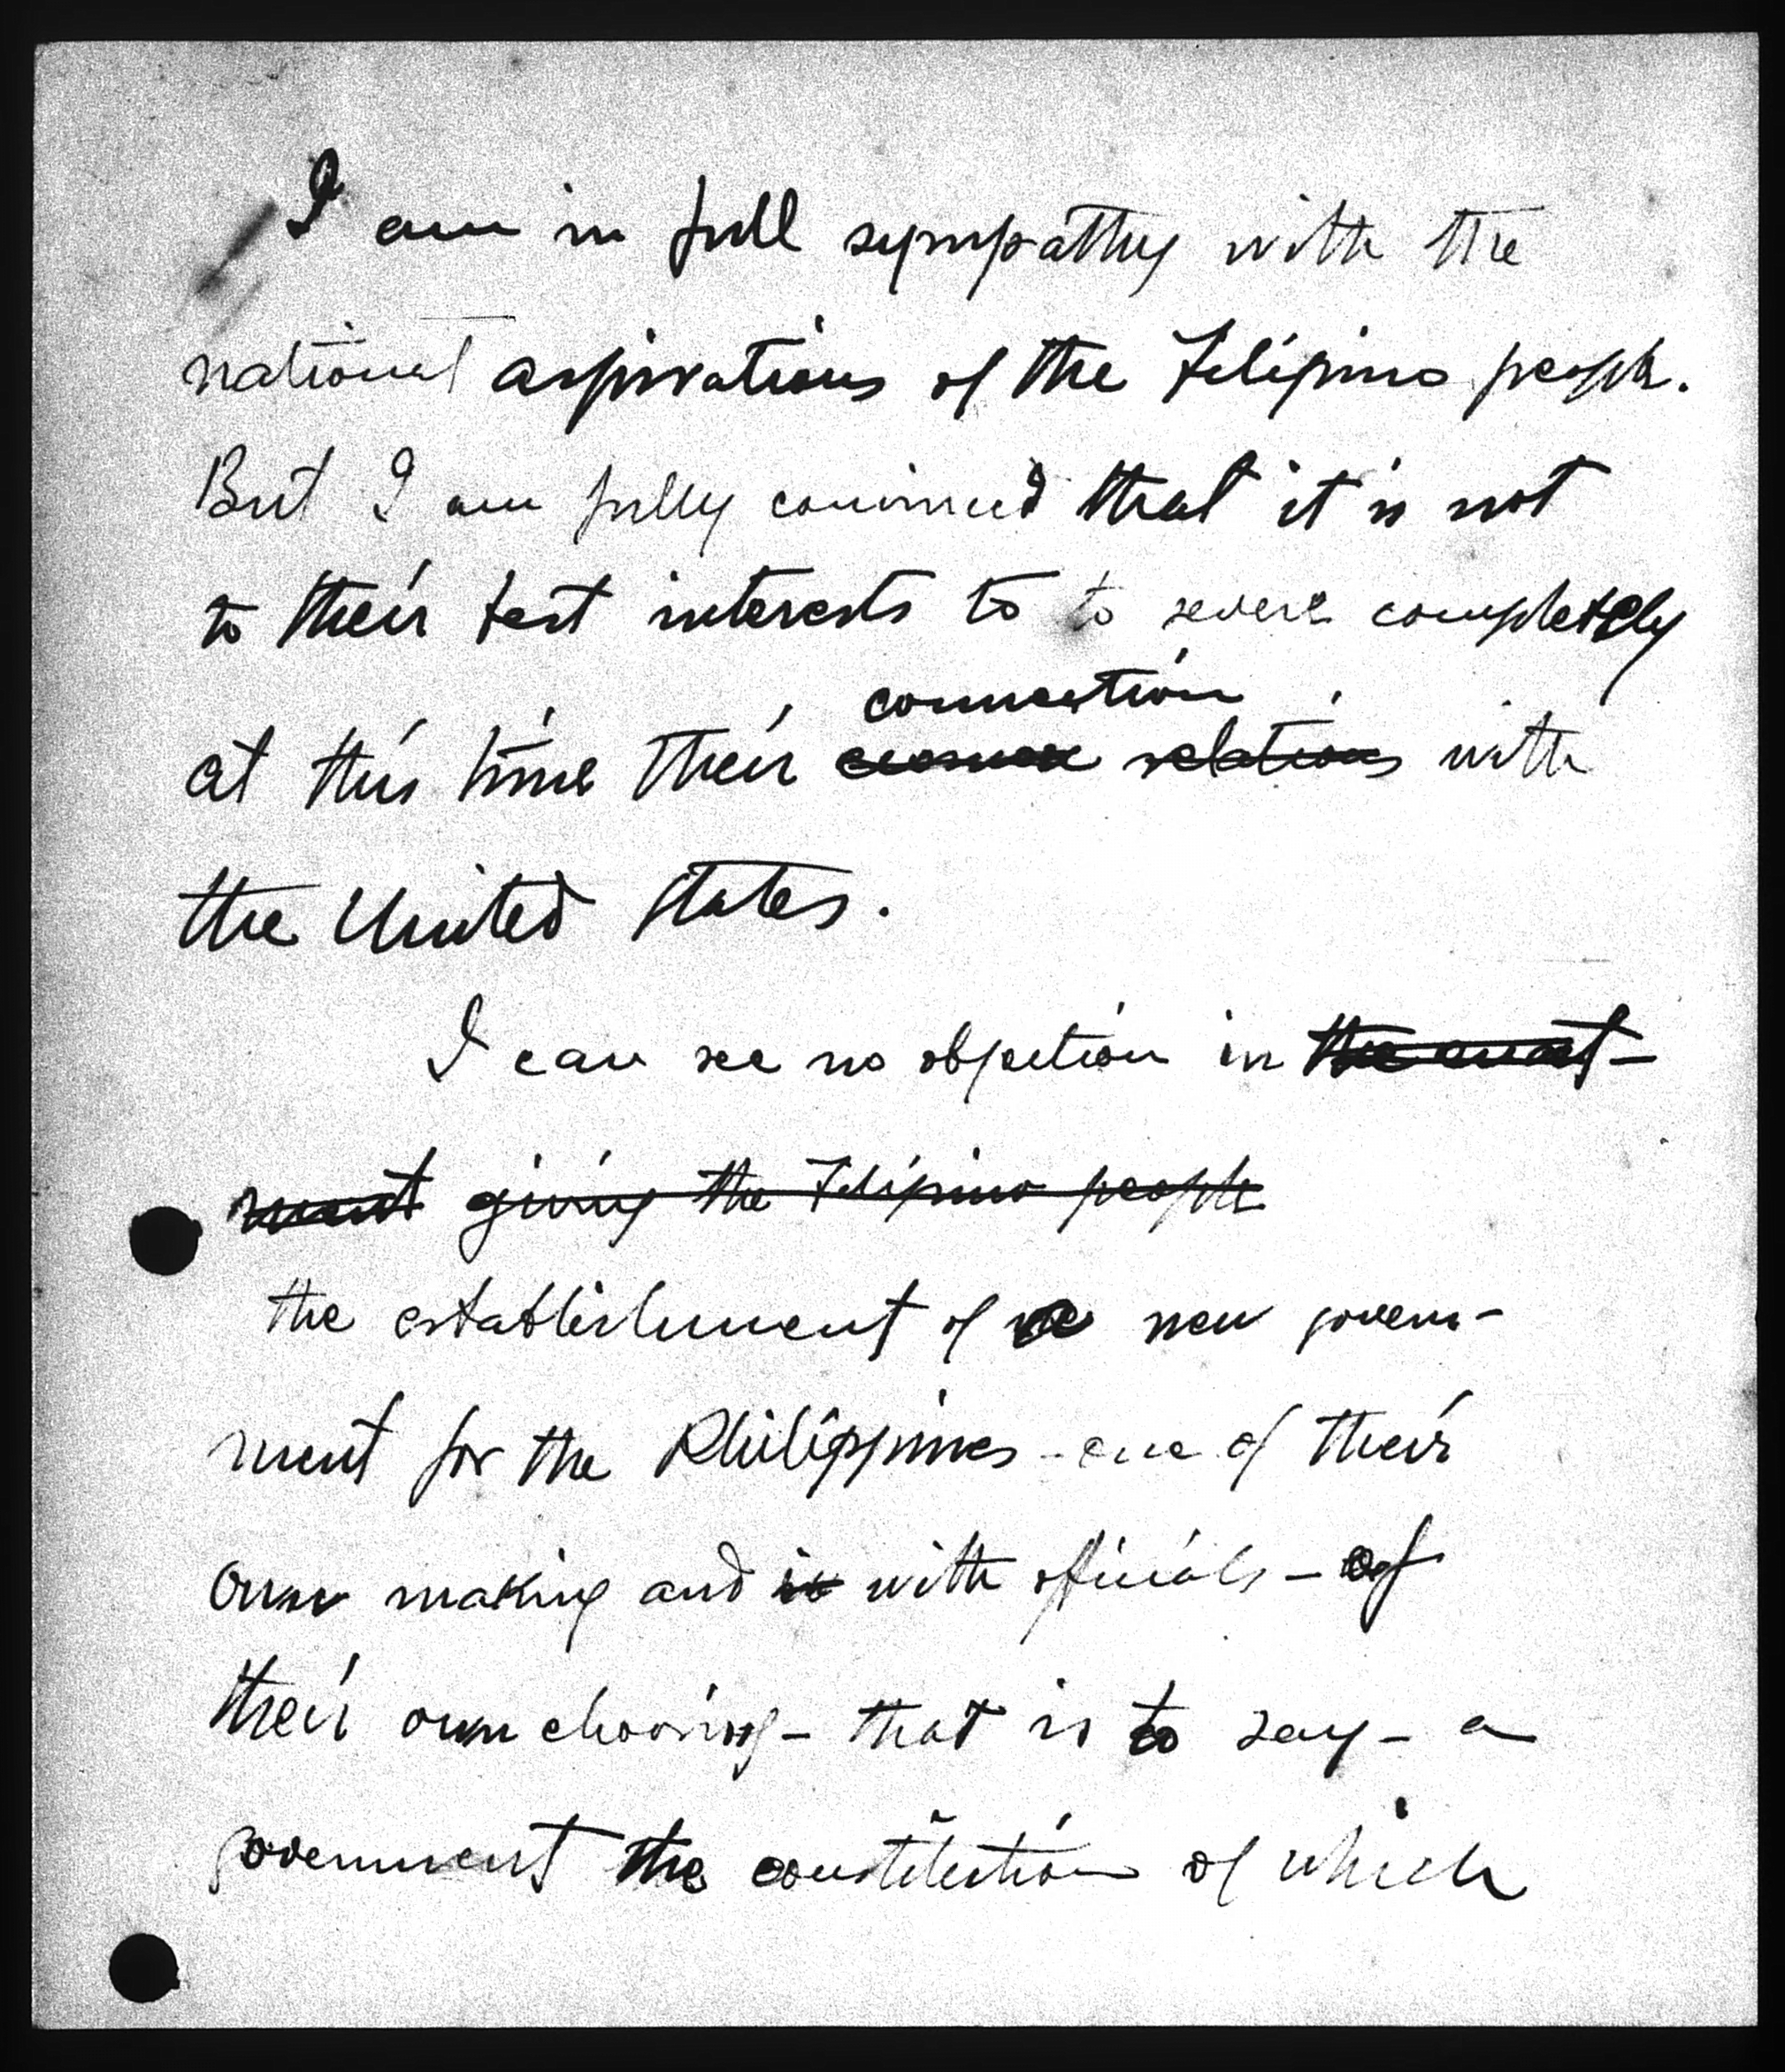 I am in full sympathy with the
national aspirations of the Filipino people.
But I am fully convinced that it is not
to their best interests to to severe completely
connection
at this time their relations with
the United States.
I can see no objection in the enact-
ment giving the Filipino people
the establishment of new govern-
ment for the Philippines - one of their
own making and is with officials - of
their own choosing - that is to say - a
government the constitution of which